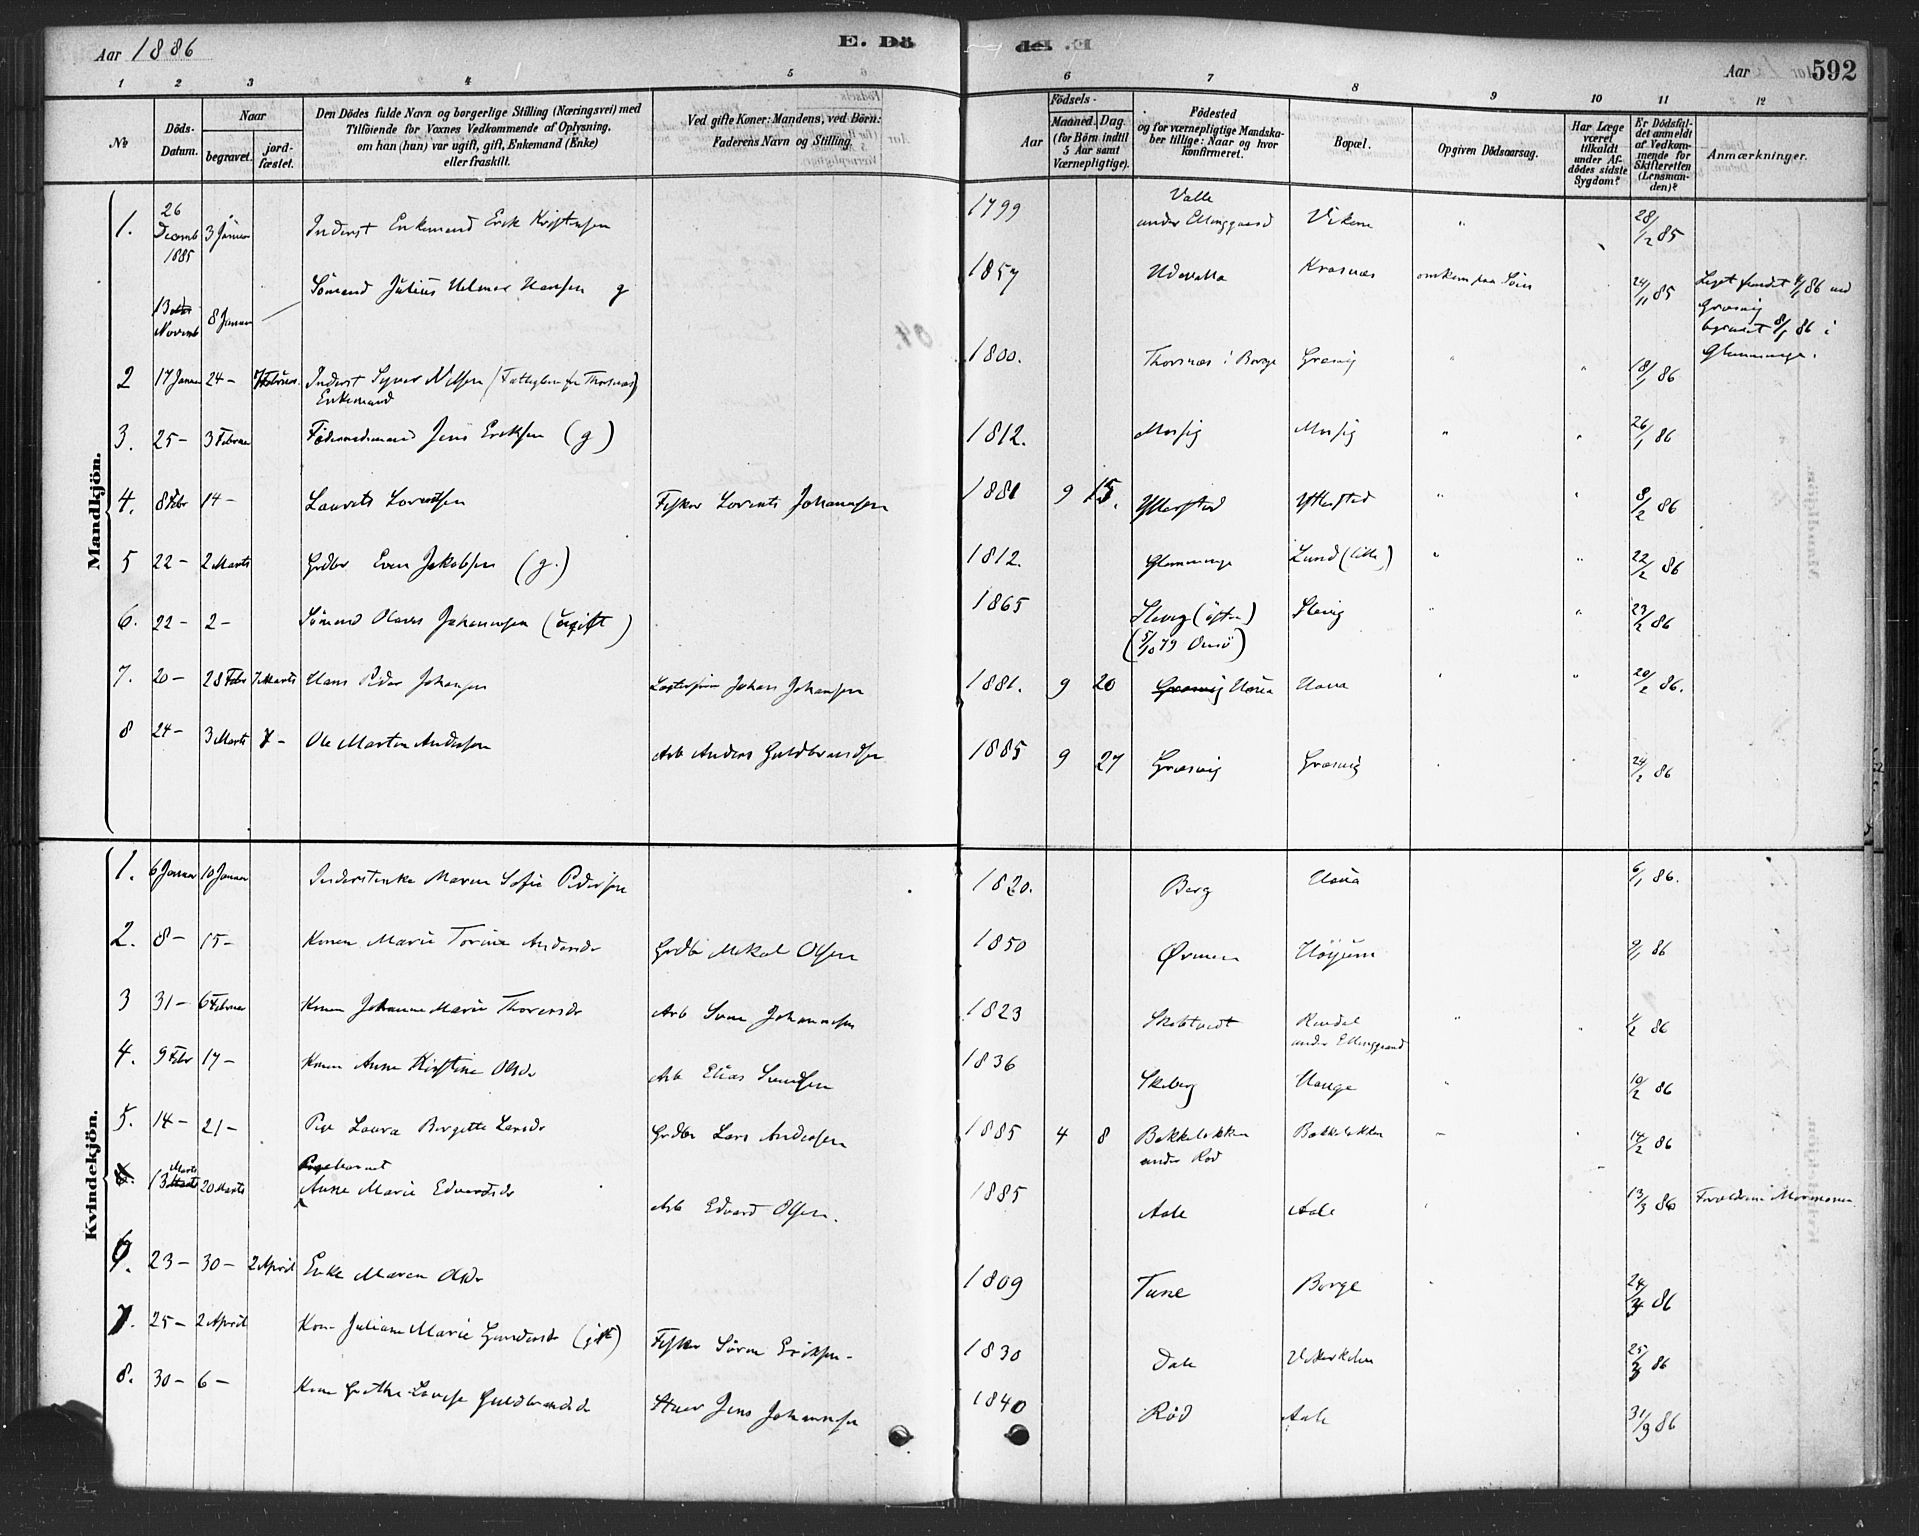 Aar 1886
E. Dö
de. E.
Aar
592
1 2 3 4 5 6 7 8 9 10 11 12
No
Döds-Datum.
Naar
begravet.
jord-fæstet.
Den Dödes fulde Navn og borgerlige Stilling (Næringsvei) med
Tilföiende for Voxnes Vedkommende af Oplysning,
om han (hun) var ugift, gift, Enkemand (Enke)
eller fraskilt.
Ved gifte Koner: Mandens, ved Börn:
Faderens Navn og Stilling.
Födsels-
Aar
Maaned. Dag.
(for Börn indtil
5 Aar samt
Værnepligtige).
Födested
og for værnepligtige Mandska-
ber tillige: Naar og hvor
konfirmeret.
Bopæl.
Opgiven Dödsaarsag.
Har Læge
været
tilkaldt
under Af-
dödes sidste
Sygdom?
Er Dödsfal-
det anmeldt
af Vedkom-
mende for
Skifteretten
(Lensman-
den)?
Anmærkninger.
Mandkjön.
1. 26 Decemb 1885 3 Januar Inderst Enkemand Erik Kristensen 1799 Valle under Elinggaard Vikene " 28/12 85
13 Novemb 8 Januar Sömand Julius Helmer Hansen g 1857 Udevalla Krosnæs omkom paa Söen 24/11 85 Liget fundet 4/1 86 ved
Græsvig
begravet 8/1 86 i
Glemminge.
2 17 Januar 24 - 7 Februar Inderst Syver Nilsen (Fattiglem fra Thorsnæs) Enkemand 1800. Thorsnæs i Borge Græsvig " " 18/1 86
3. 25 - 3 Februar Föderaadsmand Jens Eriksen (g) 1812. Mosig Mosig " " 26/1 86
4. 8 Febr 14 - Laurits Lorentsen Fisker Lorents Johannesen 1881 9 15. Ytterstad Ytterstad " " 8/2 86
5 22 - 2 Marts Grdbr Even Jakobsen (g.) 1812. Glemminge Lund (lille) " " 22/2 86
6. 22 - 2 - Sömand Olaves Johannesen (ugift) 1865 Slevig (östre) (5/10 79 Onsö) Slevig " " 23/2 86
7. 20 - 28 Febr 7 Marts Hans Peder Johansen Johan Johansen 1881. 9 20 Græsvig Haua Haua " " 20/2 86.
8 24 - 3 Marts 7 - Ole Martin Andersen Arb Anders Guldbrandsen 1885 9 27 Græsvig Græsvig 24/2 86
Kvindekjön.
1. 6 Januar 10 Januar Inderstenke Maren Sofie Pedersen 1820. Berg Haua 6/1 86.
2. 8 - 15 - Konen Marie Torine Andersdr Grdbr Mikal Olsen 1850 Ørmen Höyum 9/1 86
3 31 - 6 Februar Konen Johanne Marie Thorersdr Arb Sven Johannesen 1823 Skobtvedt under Elinggaard " 1/2 86
4. 9 Febr 17 - Konen Anne Kirstine Olsdr Arb Elias Svendsen 1836 Skiberg Hauge " 10/2 86
5. 14 - 21 - Pige Laura Birgitte Larsdr Grdbr Lars Andersen 1885 4 8 Bakkeløkken under Rød Bakkeløkken 14/2 86
13 Marts 20 Marts Pigebarnet Anne Marie Edvardsdr Arb Edvard Olsen. 1885 Aale Aale 13/3 86 Forældrene Mormoner.
6. 23 - 30 - 2 April Enke Maren Olsdr 1809 Tune Borge 24/3 86
7. 25 - 2 April Kone Juliane Marie Gundersdr (gift) Fisker Sören Eriksen - 1830 Dale 25/3 86
8. 30 - 6 - Kone Grethe Lovise Guldbrandsdr Jens Johannesen 1840 Rød Aale 31/3 86